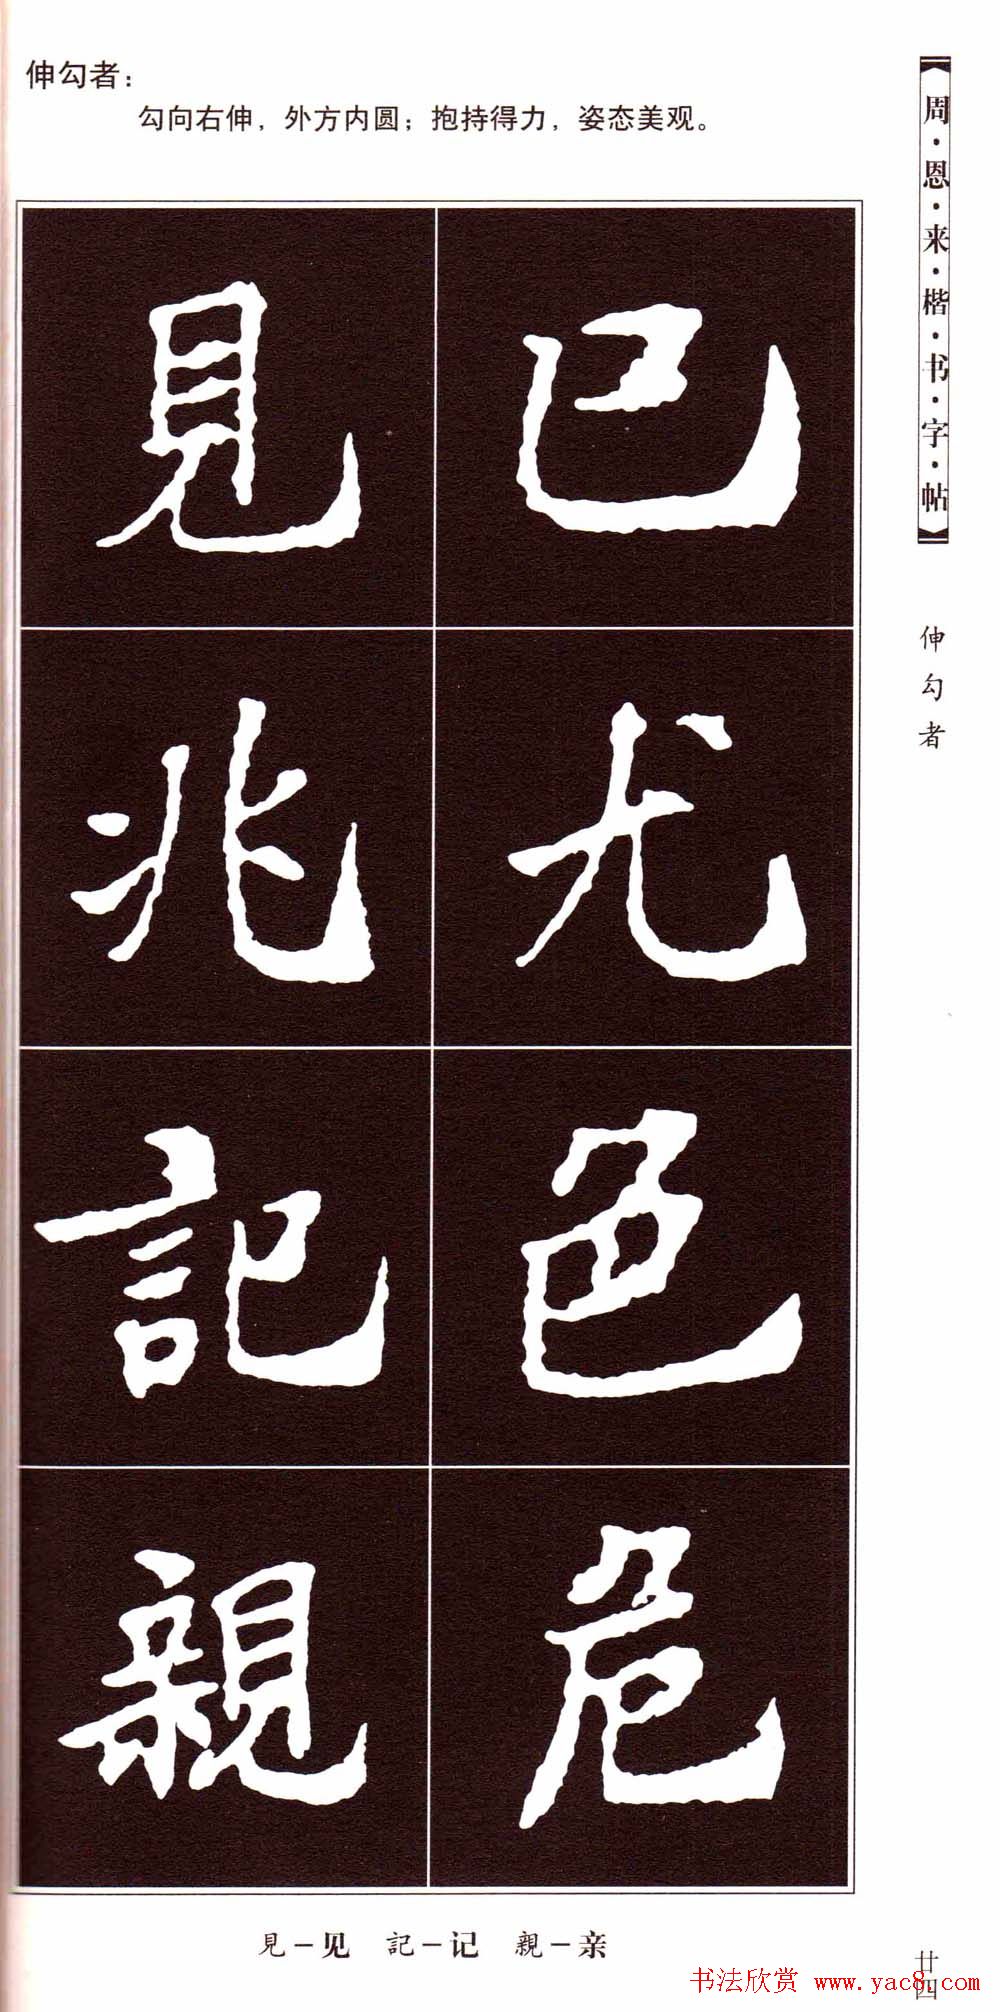 伸勾者：
勾向右伸，外方内圆；抱持得力，姿态美观。
【周·恩·来·楷·书·字·帖】
伸勾者
已
尤
色
危
見
兆
記
親
見－见 記－记 親－亲
廿四
书法欣赏 www.yac8.com